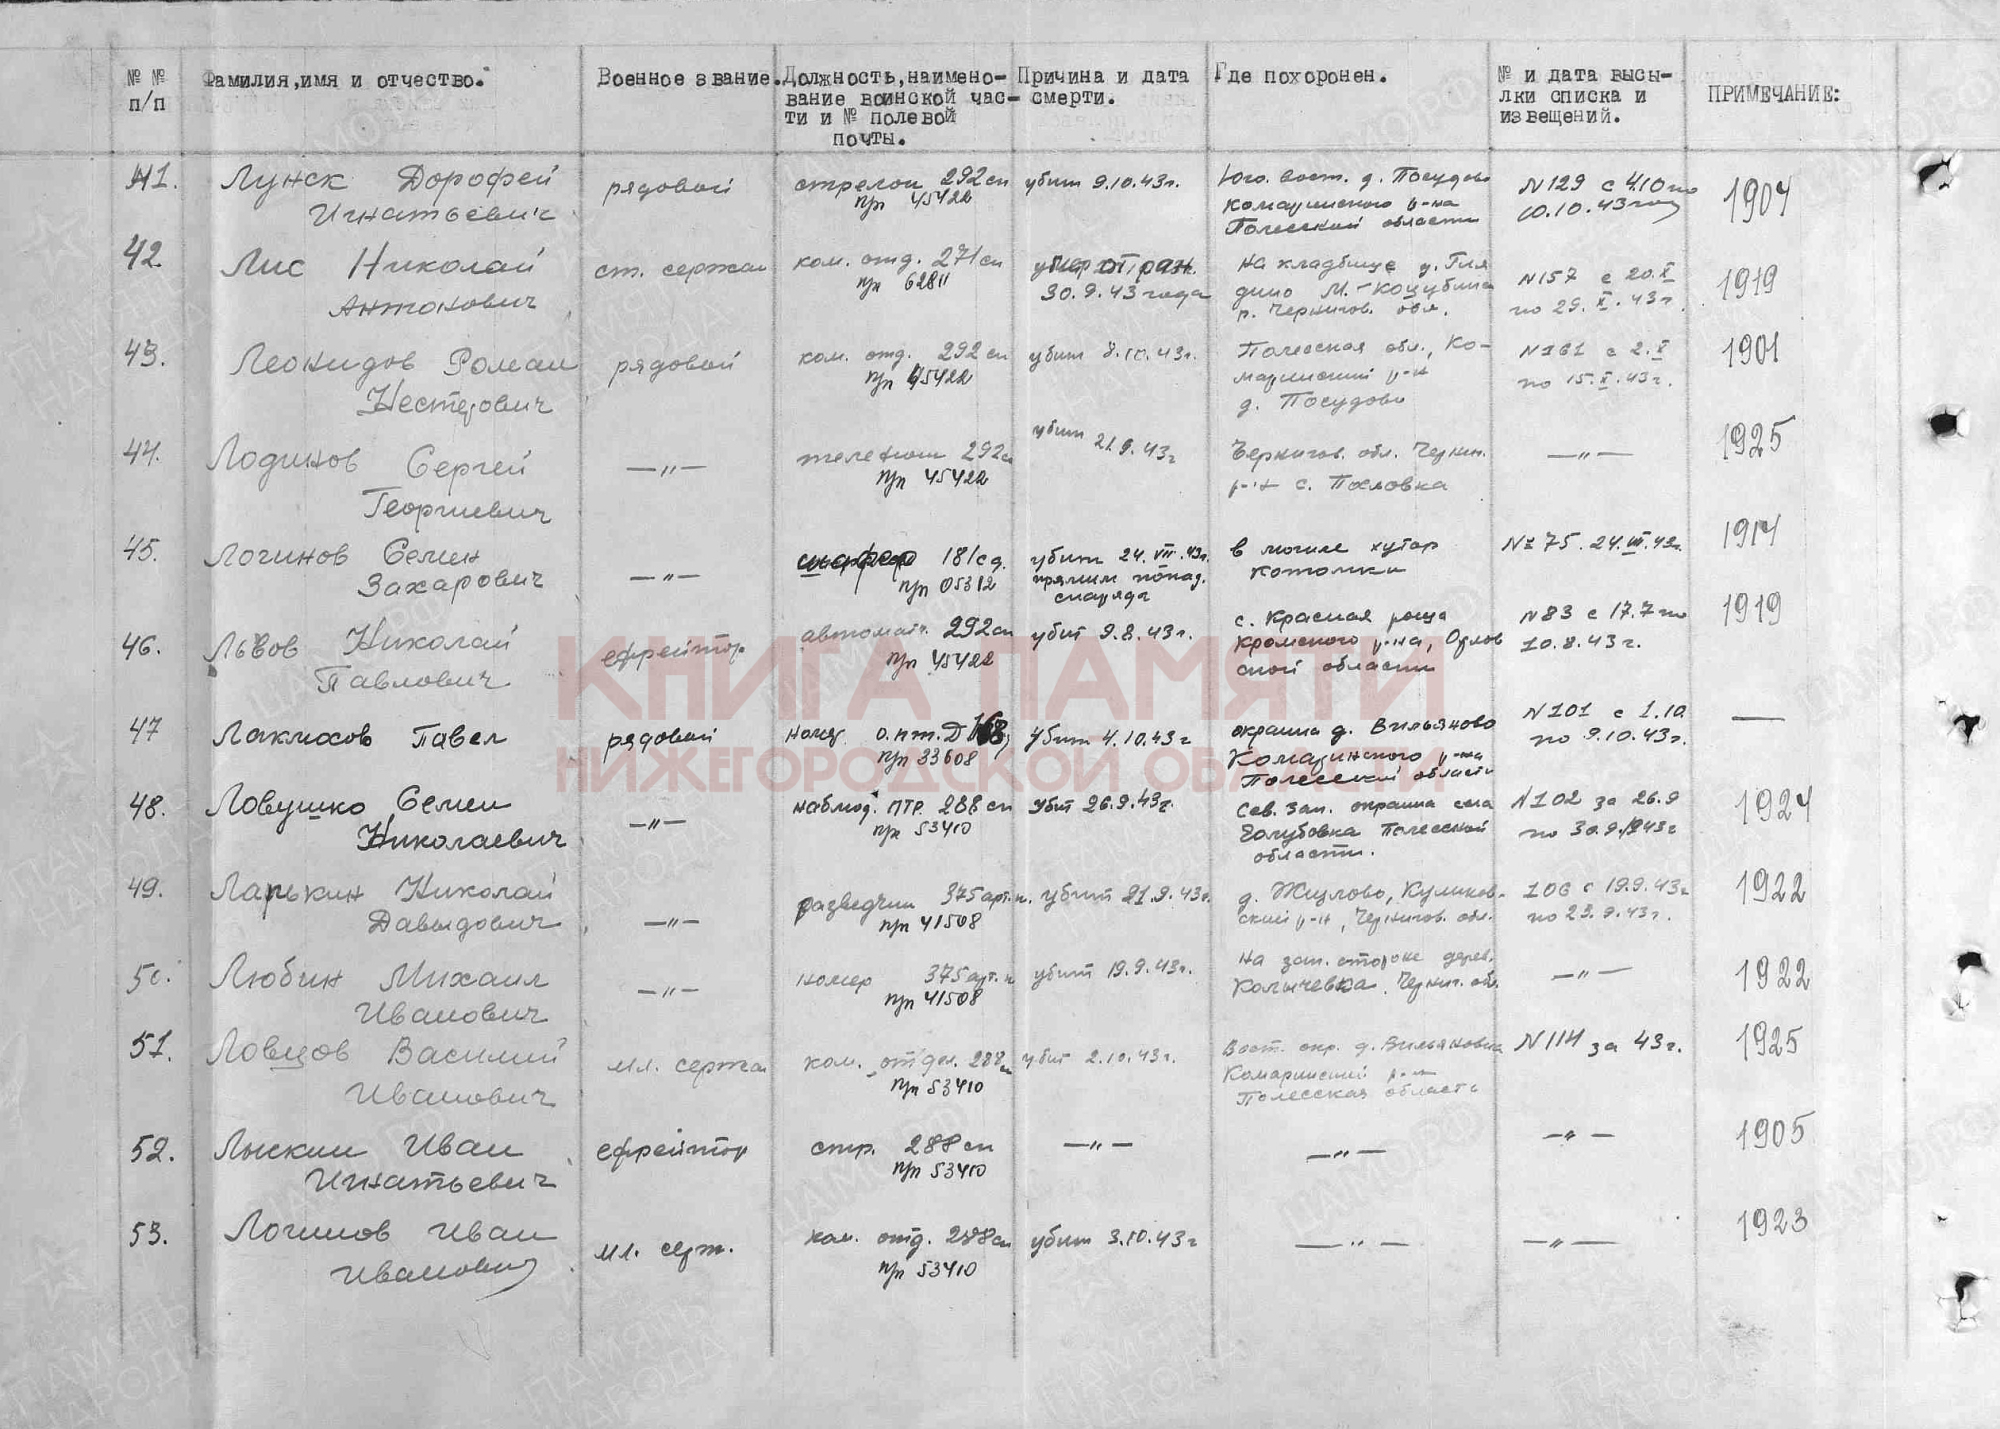 № № п/п
Фамилия,имя и отчество.
Военное звание.
Должность,наимено-
вание воинской час-
ти и № полевой
почты.
Причина и дата
смерти.
Где похоронен.
№ и дата высы-
лки списка и
извещений.
ПРИМЕЧАНИЕ:
41. Лунск Дорофей
Игнатьевич
рядовой
стрелок 292 сп
п/п 45422
убит 9.10.43г.
Юго. вост. д. Посудово
Комаринского р-на
Полесской области
N129 с 4.10 по
10.10.43 года
1904
42. Лис Николай
Антонович
ст. сержан
ком. отд. 271 сп
п/п 62811
умер от ран.
30.9.43 года
на кладбище
р. Чернигов. обл.
N157 с 20.X
по 29.X.43г.
1919
43. Леонидов Роман
Нестерович
рядовой
ком. отд. 292 сп
п/п 45422
убит 8.10.43г.
Полесская обл., Ко-
маринский р-н
д. Посудово
N161 с 2.X
по 15.X.43г.
1901
44. Лодинов Сергей
Георгиевич
—"—
телефонист 292 сп
п/п 45422
убит 21.9.43г
Чернигов. обл. Черниг.
р-н с.
—"—
1925
45. Логинов Семен
Захарович
—"—
шофер 181 сд.
п/п 05312
убит 24.VII.43г.
прямым попад.
снаряда
в могиле хутор
Котомки
№ 75. 24.VII.43г.
1914
46. Львов Николай
Павлович
ефрейтор
автомат. 292 сп
п/п 45422
убит 9.8.43г.
с. Красная роща
Кромского р-на, Орлов
ской области
N83 с 17.7 по
10.8.43г.
1919
КНИГА ПАМЯТИ
НИЖЕГОРОДСКОЙ ОБЛАСТИ
47 Лакмосов Павел
рядовой
номер о.пт.Д 168
п/п 33608
убит 4.10.43г
окраина д. Вильяново
Комаринского р-на
Полесской области
N101 с 1.10
по 9.10.43г.
—
48. Ловушко Семен
Николаевич
—"—
наблюд. ПТР. 288 сп
п/п 53410
убит 26.9.43г.
сев. зап. окраина села
Голубовка Полесской
области.
N102 за 26.9
по 30.9.1943г
1924
49. Ларькин Николай
Давыдович
—"—
разведчик 375 арт.п.
п/п 41508
убит 21.9.43г.
д. Жуглово, Куликов-
ский р-н, Чернигов. обл.
106 с 19.9.43г
по 23.9.43г.
1922
50. Любин Михаил
Иванович
—"—
номер 375 арт.п
п/п 41508
убит 19.9.43г.
На зап. стороне дерев.
Колычевка, Черниг. обл.
—"—
1922
51. Ловцов Василий
Иванович
мл. сержан
ком. отдел. 288 сп
п/п 53410
убит 2.10.43г.
Вост. окр. д. Вильяновка
Комаринский р-н
Полесская область
N114 за 43г.
1925
52. Лыскин Иван
Игнатьевич
ефрейтор
стр. 288 сп
п/п 53410
—"—
—"—
—"—
1905
53. Логинов Иван
Иванович
мл. серж.
ком. отд. 288 сп
п/п 53410
убит 3.10.43г
—"—
—"—
1923